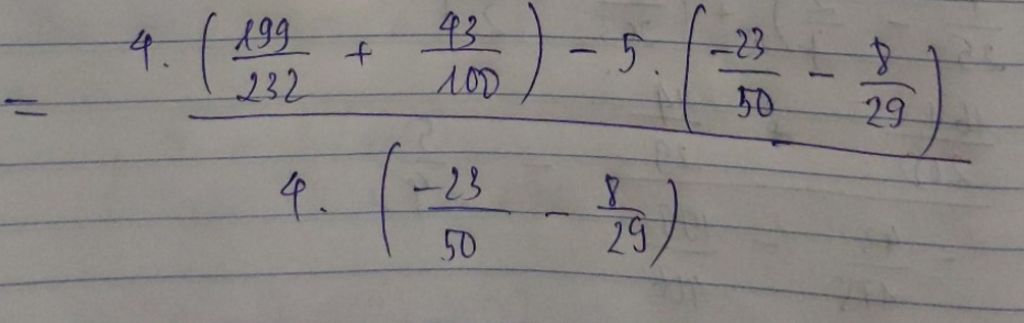 4. (199/232 + 43/100) - 5. (-23/50 - 8/29)
=
4. (-23/50 - 8/29)